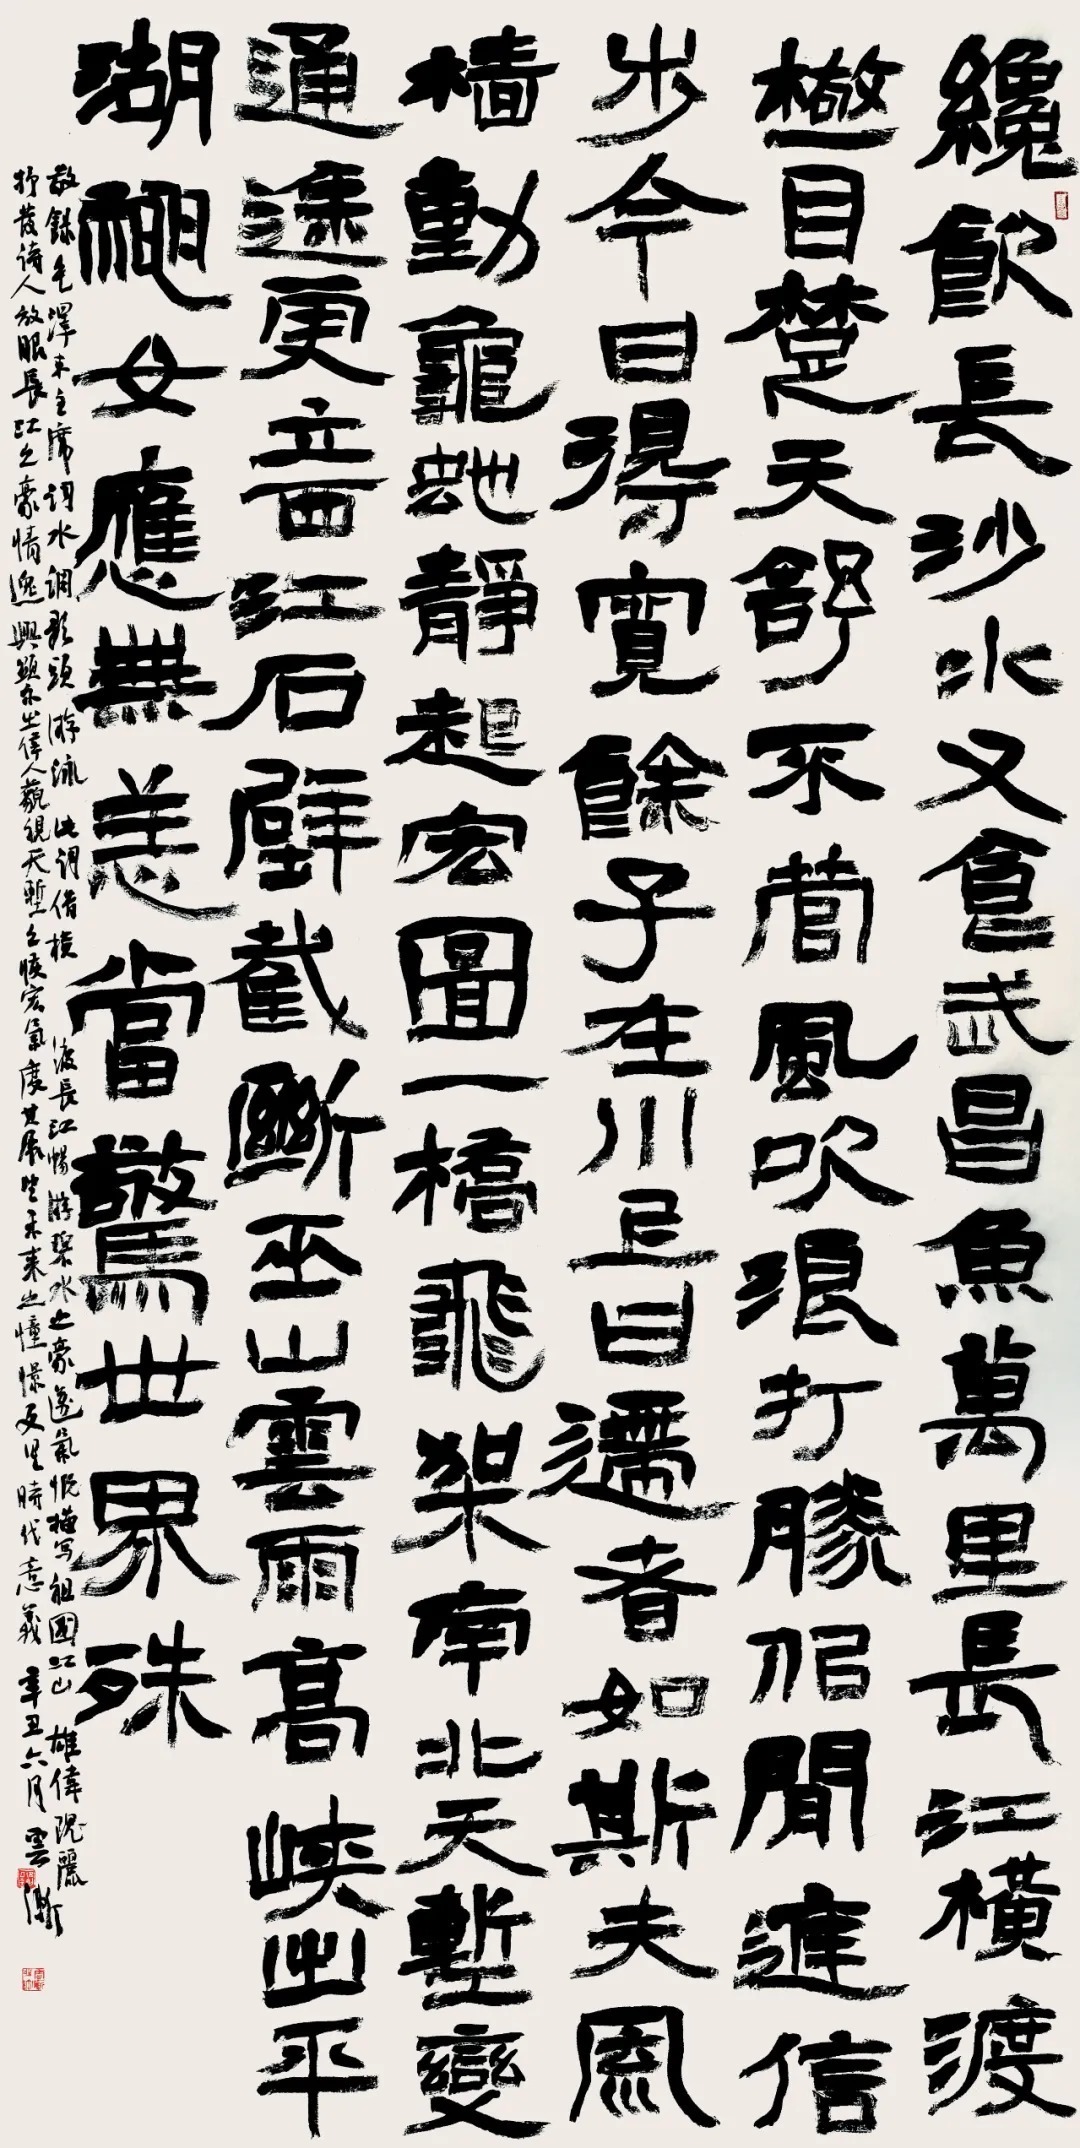 纔飲長沙水又食武昌魚萬里長江橫渡
極目楚天舒不管風吹浪打勝佀閒進信
步今日得寬餘子在川上曰逝者如斯夫風
檣動龜蛇靜起宏圖一橋飛架南北天塹變
通途更立西江石壁截斷巫山雲雨高峽出平
湖神女應無恙當驚世界殊
敬錄毛澤東主席詞水調歌頭游泳此詞借橫渡長江暢游碧水之豪邁氣概描寫祖國江山雄偉瑰麗
抒發詩人放眼長江之豪情逸興顯示出偉人藐視天塹之恢宏氣度其展望未來之憧憬更具時代意義辛丑六月雲